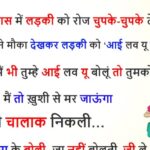 लास में लड़की को रोज चुपके-चुपके दे
ने मौका देखकर लड़की को 'आई लव यू
में भी तुम्हे आई लव यू बोलूं तो तुमको
मैं तो ख़ुशी से मर जाऊंगा
चालाक निकली...
के बोली, जा नहीं बोलती, जी ले